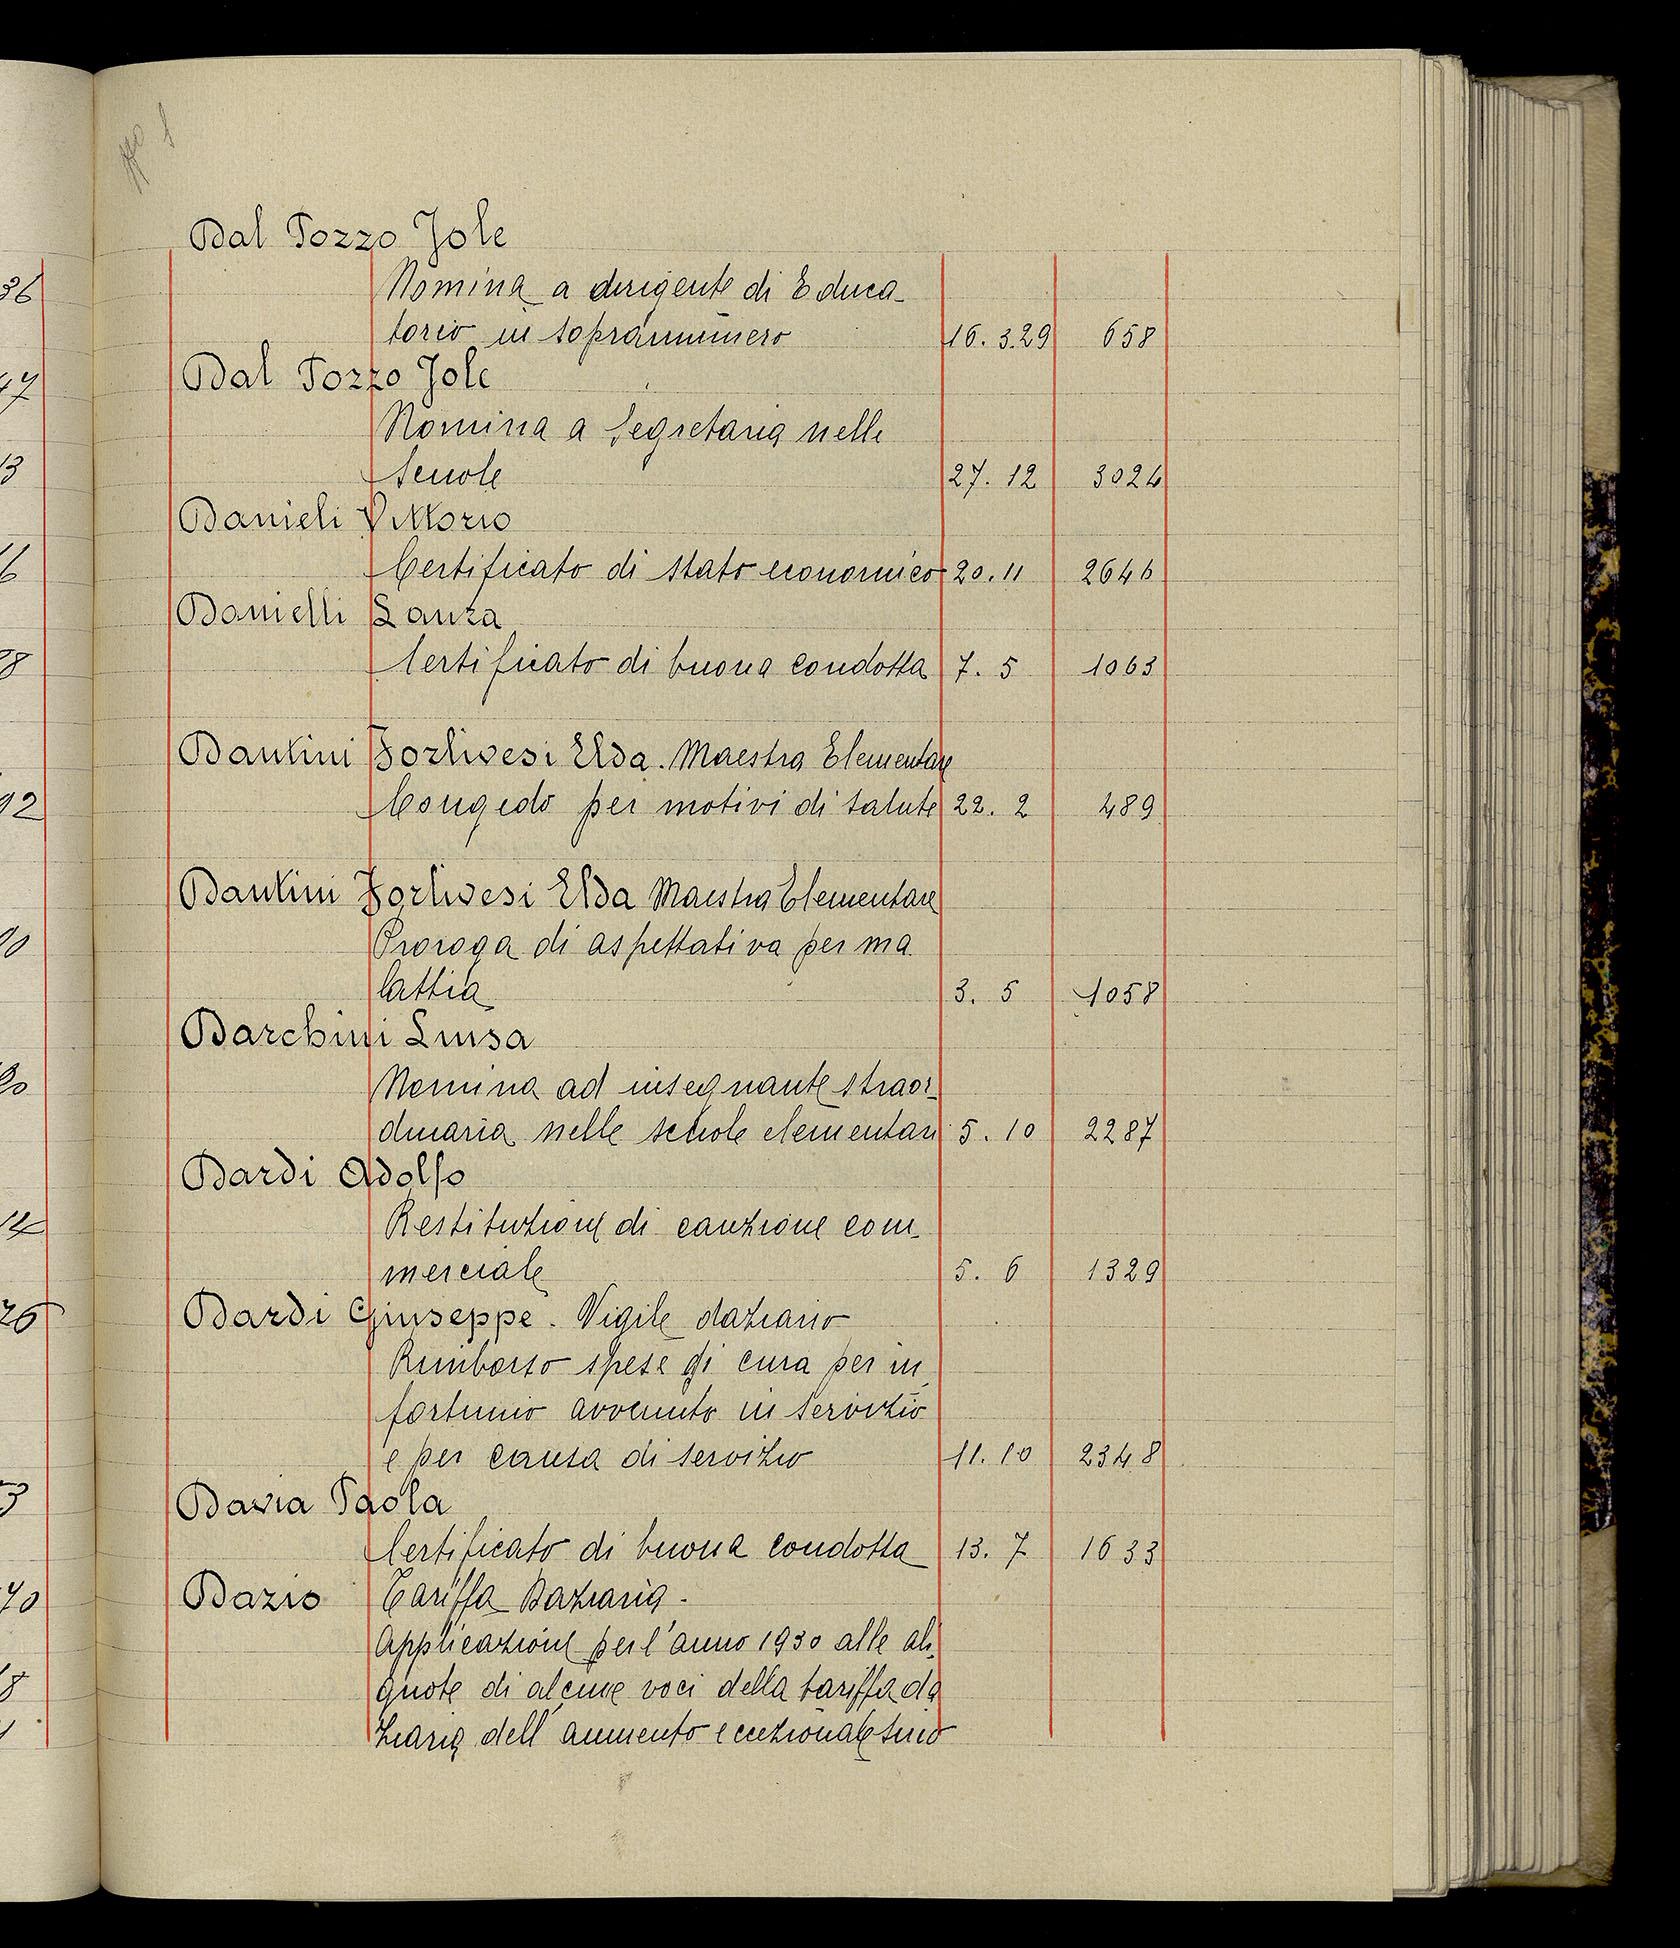 36
47
13
16
12
90
20
14
26
3
70
8
Dal Pozzo Jole
Nomina a dirigente di Educa-
torio in soprannumero 16. 3.29 658
Dal Pozzo Jole
Nomina a Segretaria nelle
Scuole 27. 12 3024
Danieli Vittorio
Certificato di stato economico 20. 11 2646
Danielli Laura
Certificato di buona condotta 7. 5 1063
Dantini Forlivesi Elda. Maestra Elementare
Congedo per motivi di salute 22. 2 489
Dantini Forlivesi Elda Maestra Elementare
Proroga di aspettativa per ma
lattia 3. 5 1058
Darchini Luisa
Nomina ad insegnante straor-
dinaria nelle scuole elementari 5. 10 2287
Dardi Adolfo
Restituzione di cauzione com-
merciale 5. 6 1329
Dardi Giuseppe. Vigile daziario
Rimborso spese di cura per in
fortunio avvenuto in servizio
e per causa di servizio 11. 10 2348
Davia Paola
Certificato di buona condotta 13. 7 1633
Dazio Tariffa Daziaria -
Applicazione per l'anno 1930 alle ali-
quote di alcune voci della tariffa da
ziaria dell'aumento eccezionale sino